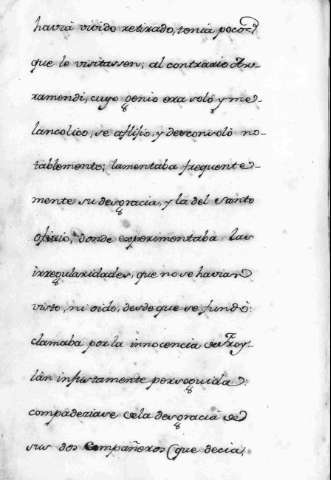 havia vivido retirado, tenia pocos
que le visitassen; al contrario Ar-
ramendi, cuyo genio era solo y me-
lancolico, se aflijio, y desconsolò no-
tablemente; lamentaba frequente-
mente su desgracia, y la del Santo
oficio, donde experimentaba las
irregularidades, que no se havian
visto, ni oido, desde que se fundò:
clamaba por la innocencia de Froy-
làn injustamente perseguida:
compadeziase de la desgracia de
sus dos Compañeros (que decia,